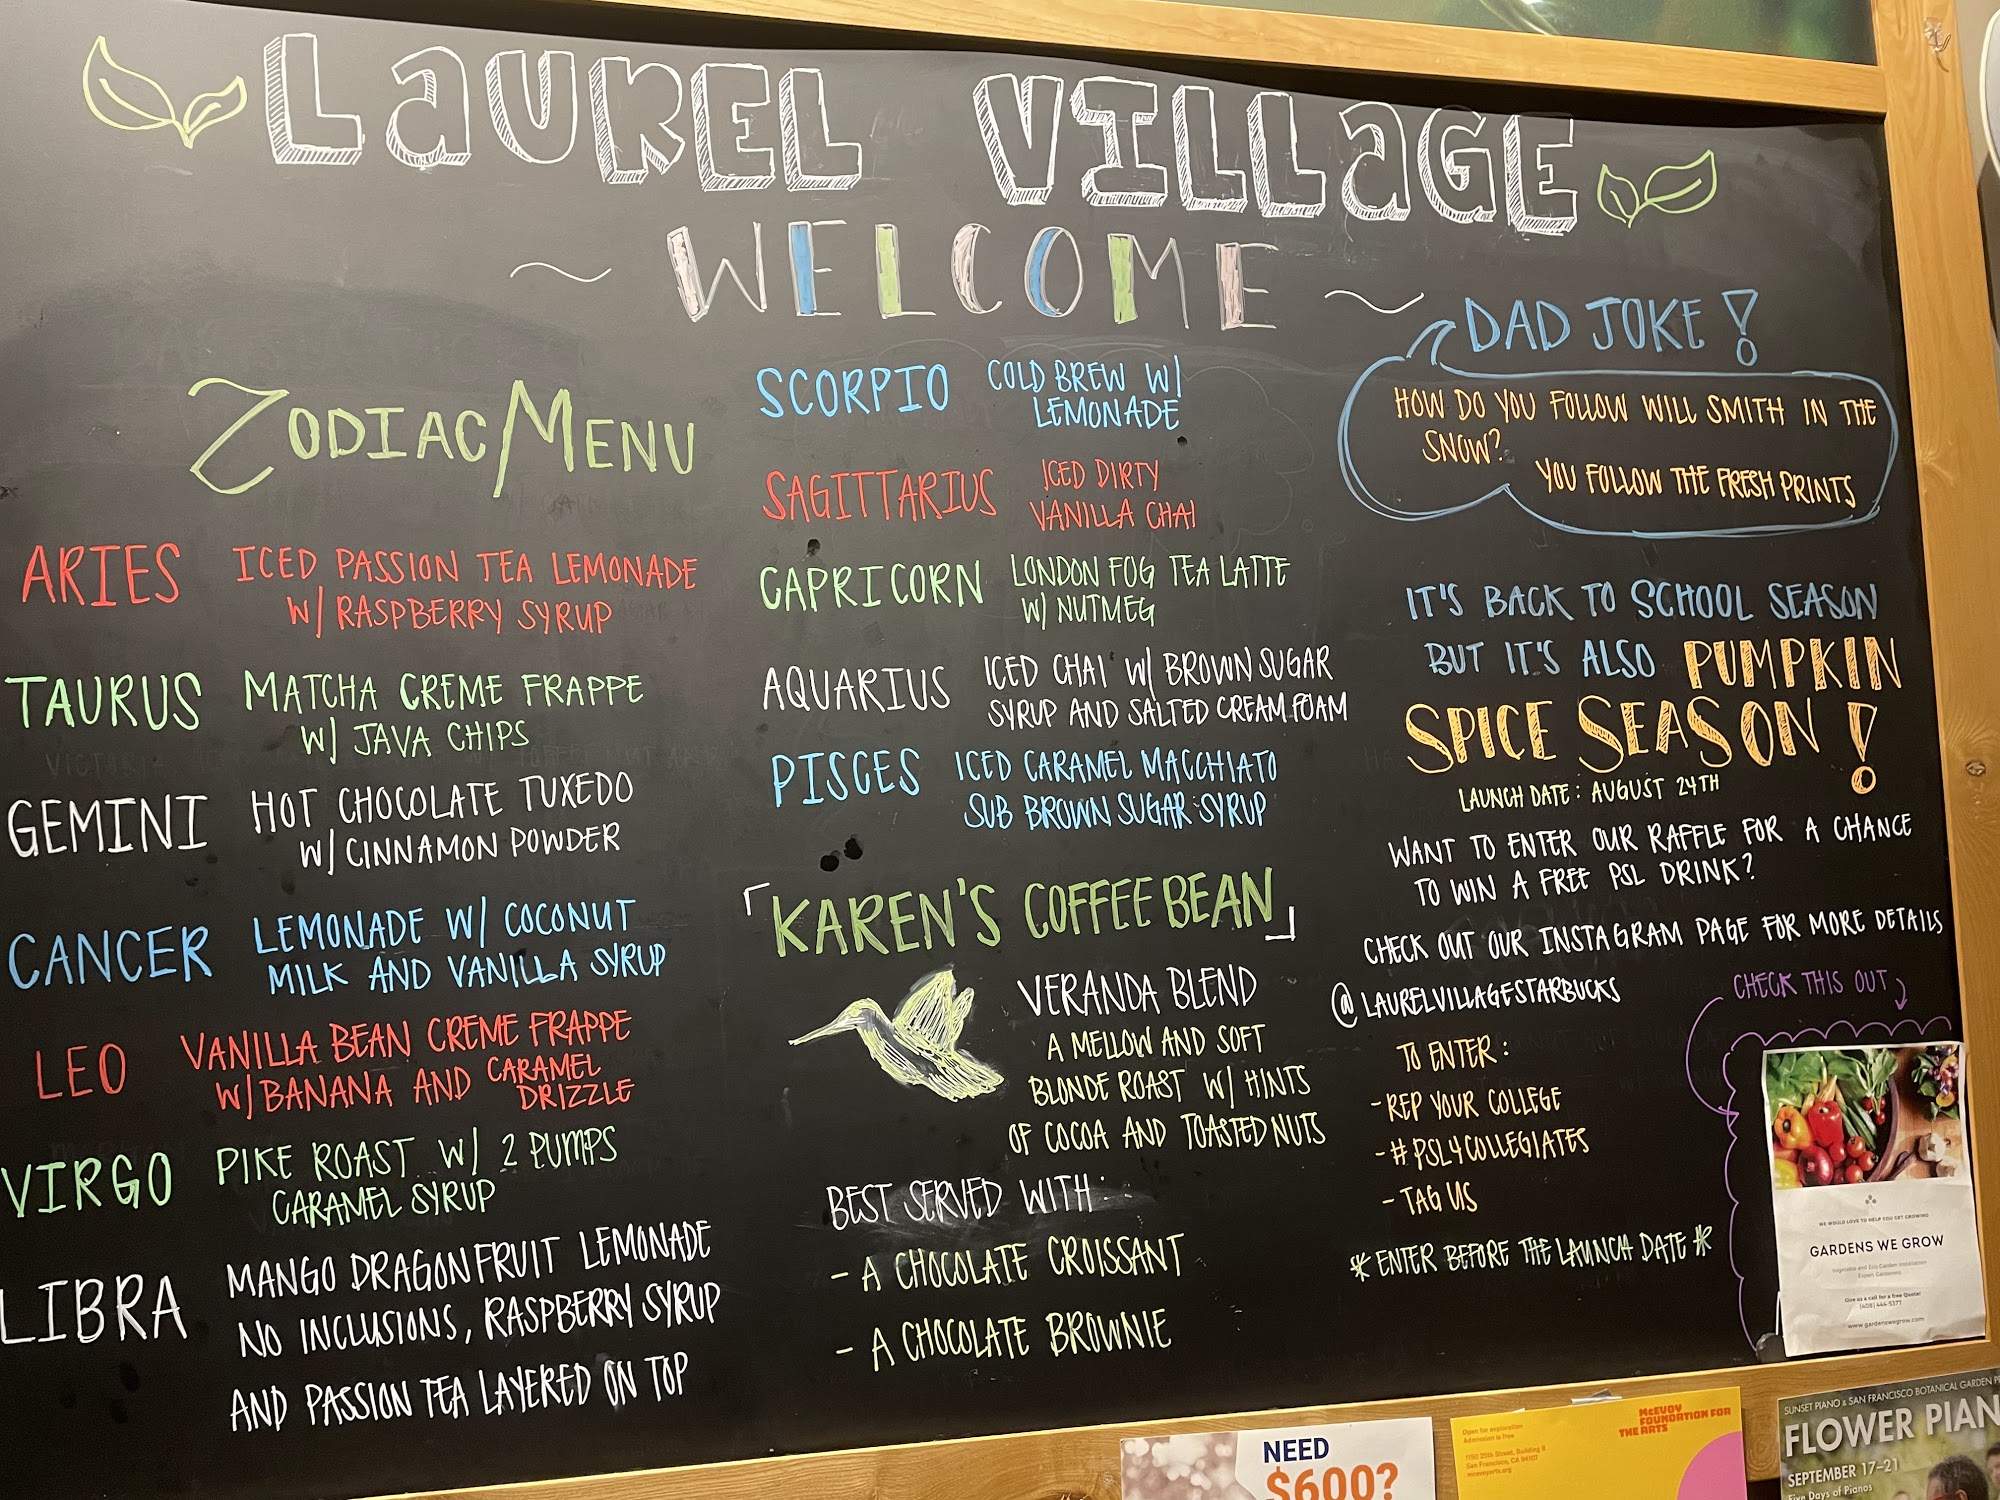 LAUREL VILLAGE
~ WELCOME ~
ZODIAC/MENU
ARIES ICED PASSION TEA LEMONADE
W/ RASPBERRY SYRUP
TAURUS MATCHA CREME FRAPPE
W/ JAVA CHIPS
GEMINI HOT CHOCOLATE TUXEDO
W/ CINNAMON POWDER
CANCER LEMONADE W/ COCONUT
MILK AND VANILLA SYRUP
LEO VANILLA BEAN CREME FRAPPE
W/ BANANA AND CARAMEL
DRIZZLE
VIRGO PIKE ROAST W/ 2 PUMPS
CARAMEL SYRUP
LIBRA MANGO DRAGONFRUIT LEMONADE
NO INCLUSIONS, RASPBERRY SYRUP
AND PASSION TEA LAYERED ON TOP
SCORPIO COLD BREW W/
LEMONADE
SAGITTARIUS ICED DIRTY
VANILLA CHAI
CAPRICORN LONDON FOG TEA LATTE
W/ NUTMEG
AQUARIUS ICED CHAI W/ BROWN SUGAR
SYRUP AND SALTED CREAM FOAM
PISCES ICED CARAMEL MACCHIATO
SUB BROWN SUGAR SYRUP
「KAREN'S COFFEE BEAN」
VERANDA BLEND
A MELLOW AND SOFT
BLONDE ROAST W/ HINTS
OF COCOA AND TOASTED NUTS
BEST SERVED WITH:
- A CHOCOLATE CROISSANT
- A CHOCOLATE BROWNIE
DAD JOKE!
HOW DO YOU FOLLOW WILL SMITH IN THE
SNOW?
YOU FOLLOW THE FRESH PRINTS
IT'S BACK TO SCHOOL SEASON
BUT IT'S ALSO PUMPKIN
SPICE SEASON!
LAUNCH DATE: AUGUST 24TH
WANT TO ENTER OUR RAFFLE FOR A CHANCE
TO WIN A FREE PSL DRINK?
CHECK OUT OUR INSTAGRAM PAGE FOR MORE DETAILS
@LAURELVILLAGESTARBUCKS
TO ENTER:
- REP YOUR COLLEGE
- #PSL4COLLEGIATES
- TAG US
* ENTER BEFORE THE LAUNCH DATE *
CHECK THIS OUT
WE WOULD LOVE TO HELP YOU GET GROWING
GARDENS WE GROW
Vegetable and Eco Garden Installation
Expert Gardeners
Give us a call for a free Quote!
(408) 444-5377
www.gardenswegrow.com
NEED
$600?
Open for exploration
Admission is free
1150 25th Street, Building B
San Francisco, CA 94107
mcevoyarts.org
McEVOY
FOUNDATION FOR
THE ARTS
SUNSET PIANO & SAN FRANCISCO BOTANICAL GARDEN
FLOWER PIAN
SEPTEMBER 17–21
Five Days of Pianos